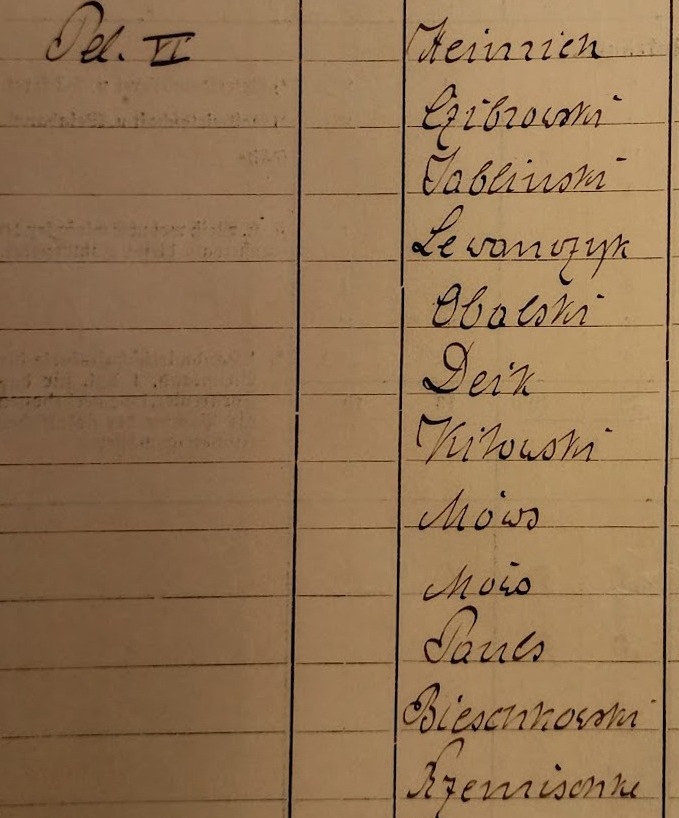 Pel. VI
Heinrich
Czibrowski
Jablinski
Lewanczyk
Obalski
Deik
Kitowski
Möws
Möws
Pauls
Bieschkowski
Rzemischke